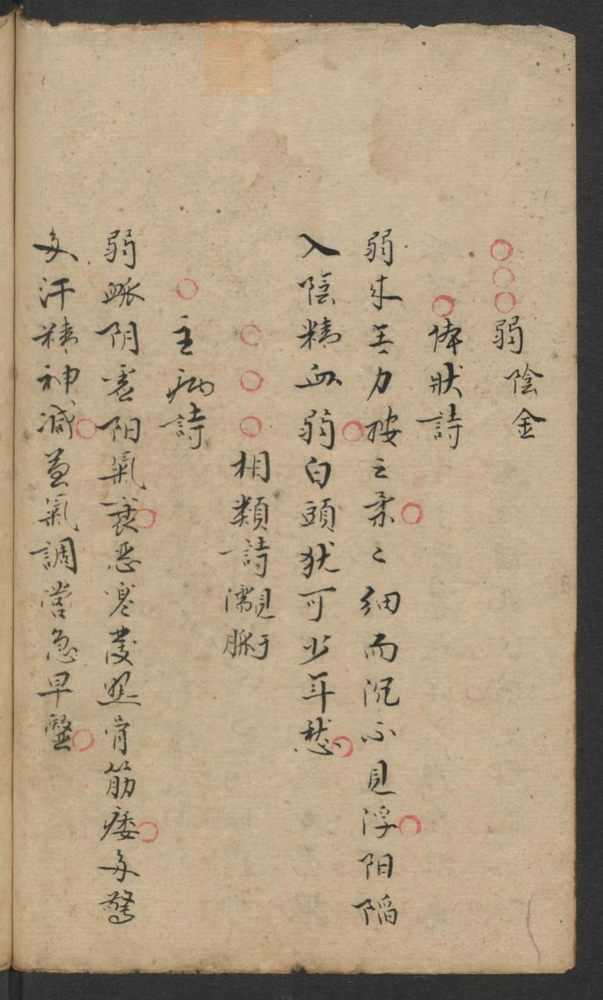 弱陰金
体狀詩
弱来无力按之柔柔細而沉不見浮阳陷
入陰精血弱白頭犹可少年愁
相類詩濡脉見于
主病詩
弱脉阴虚阳氣衰恶寒發熱骨筋痿多驚
多汗精神减益氣調营急早醫